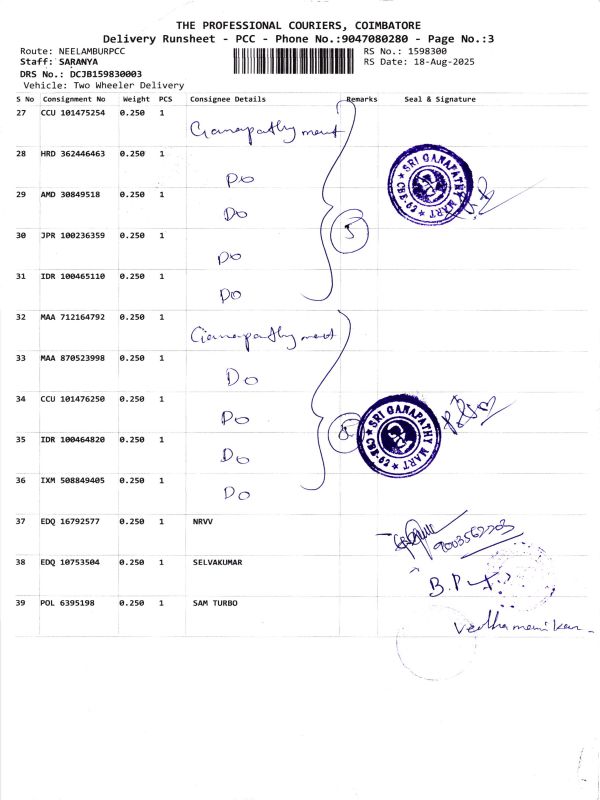 THE PROFESSIONAL COURIERS, COIMBATORE
Delivery Runsheet - PCC - Phone No.:9047080280 - Page No.:3
Route: NEELAMBURPCC RS No.: 1598300
Staff: SARANYA RS Date: 18-Aug-2025
DRS No.: DCJB159830003
Vehicle: Two Wheeler Delivery
S No Consignment No Weight PCS Consignee Details Remarks Seal & Signature
27 CCU 101475254 0.250 1 Ganapathy mart
28 HRD 362446463 0.250 1 Do
SRI GANAPATHY MART
CBE-62
29 AMD 30849518 0.250 1 Do
5
30 JPR 100236359 0.250 1 Do
31 IDR 100465110 0.250 1 Do
32 MAA 712164792 0.250 1 Ganapathy mart
33 MAA 870523998 0.250 1 Do
34 CCU 101476250 0.250 1 Do
SRI GANAPATHY MART
CBE-62
35 IDR 100464820 0.250 1 Do
36 IXM 508849405 0.250 1 Do
37 EDQ 16792577 0.250 1 NRVV
38 EDQ 10753504 0.250 1 SELVAKUMAR
39 POL 6395198 0.250 1 SAM TURBO